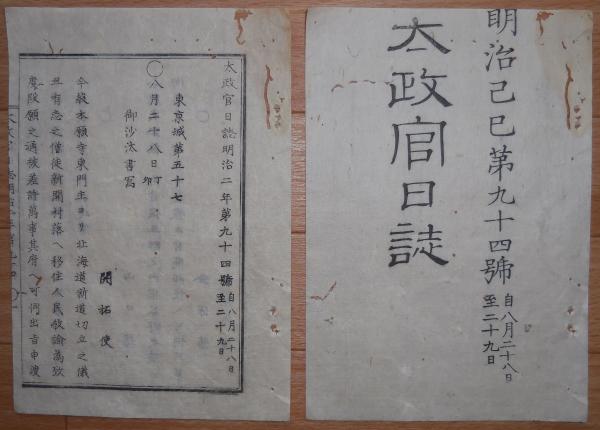 明治己巳第九十四號 自八月二十八日 至二十九日
太政官日誌
太政官日誌明治二年第九十四號 自八月二十八日 至二十九日
東京城第五十七
○八月二十八日丁卯
御沙汰書寫
開拓使
今般本願寺東門主ヨリ北海道新道切立之儀
且有志之僧徒新開村落ヘ移住人民教諭為致
度段願之通被差許萬事其府ヘ可伺出旨申渡